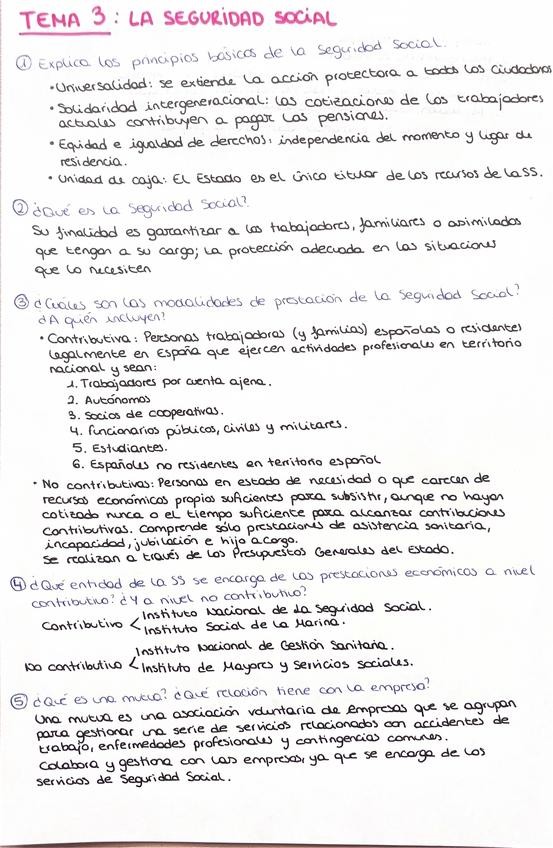 TEMA 3: LA SEGURIDAD SOCIAL
① Explica los principios básicos de la Seguridad Social.
• Universalidad: se extiende la acción protectora a todos los ciudadanos
• Solidaridad intergeneracional: las cotizaciones de los trabajadores
actuales contribuyen a pagar las pensiones.
• Equidad e igualdad de derechos: independencia del momento y lugar de
residencia.
• Unidad de caja: El Estado es el único titular de los recursos de la SS.
② ¿Qué es la Seguridad Social?
Su finalidad es garantizar a los trabajadores, familiares o asimilados
que tengan a su cargo; la protección adecuada en las situaciones
que lo necesiten
③ ¿Cuáles son las modalidades de prestación de la Seguridad Social?
¿A quién incluyen?
• Contributiva: Personas trabajadoras (y familias) españolas o residentes
legalmente en España que ejercen actividades profesionales en territorio
nacional y sean:
1. Trabajadores por cuenta ajena.
2. Autónomos
3. Socios de cooperativas.
4. Funcionarios públicos, civiles y militares.
5. Estudiantes.
6. Españoles no residentes en territorio español
• No contributivas: Personas en estado de necesidad o que carecen de
recursos económicos propios suficientes para subsistir, aunque no hayan
cotizado nunca o el tiempo suficiente para alcanzar contribuciones
contributivas. Comprende sólo prestaciones de asistencia sanitaria,
incapacidad, jubilación e hijo a cargo.
Se realizan a través de los Presupuestos Generales del Estado.
④ ¿Qué entidad de la SS se encarga de las prestaciones económicas a nivel
contributivo? ¿Y a nivel no contributivo?
Instituto Nacional de la Seguridad Social.
Contributivo < Instituto Social de la Marina.
Instituto Nacional de Gestión Sanitaria.
No contributivo < Instituto de Mayores y Servicios Sociales.
⑤ ¿Qué es una mutua? ¿Qué relación tiene con la empresa?
Una mutua es una asociación voluntaria de empresas que se agrupan
para gestionar una serie de servicios relacionados con accidentes de
trabajo, enfermedades profesionales y contingencias comunes.
Colabora y gestiona con las empresas, ya que se encarga de los
servicios de Seguridad Social.